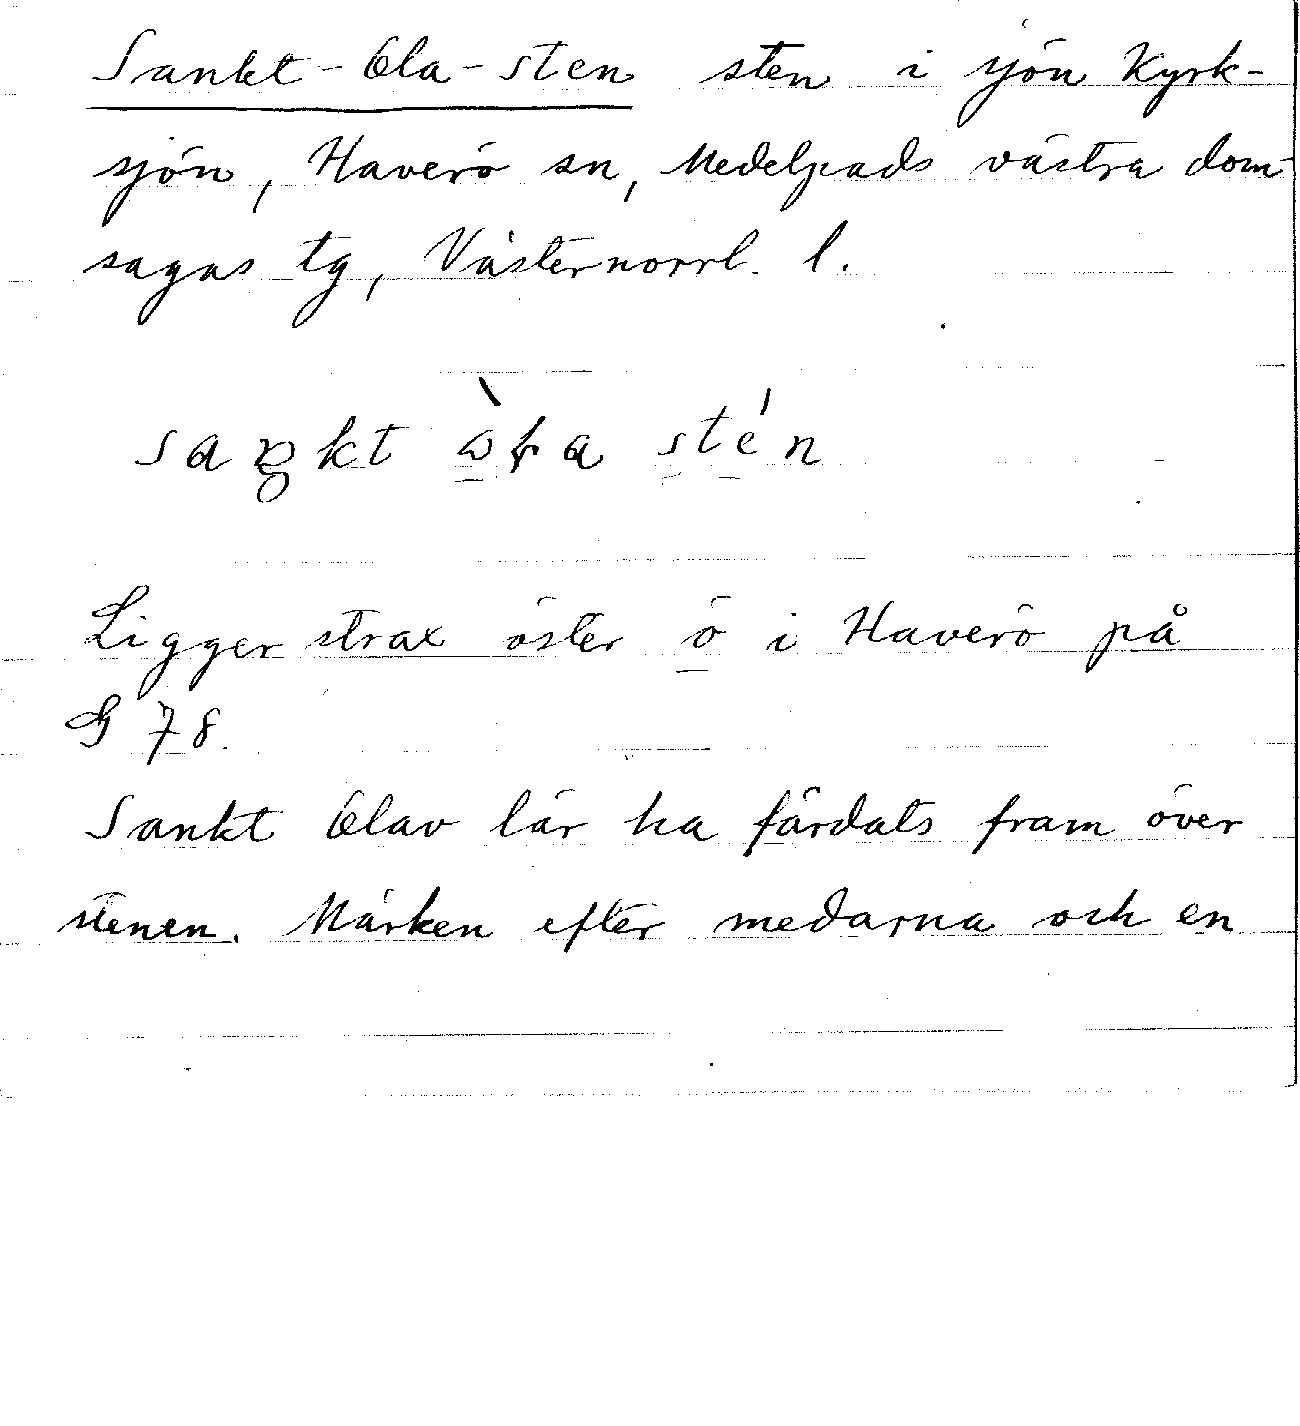 Sankt-Ola-sten sten i sjön Kyrk-
sjön, Haverö sn, Medelpads västra dom-
sagas tg, Västernorrl. l.
saŋkt
Ligger strax öster ö i Haverö på
G 78.
Sankt Olav lär ha färdats fram över
stenen. Märken efter medarna och en